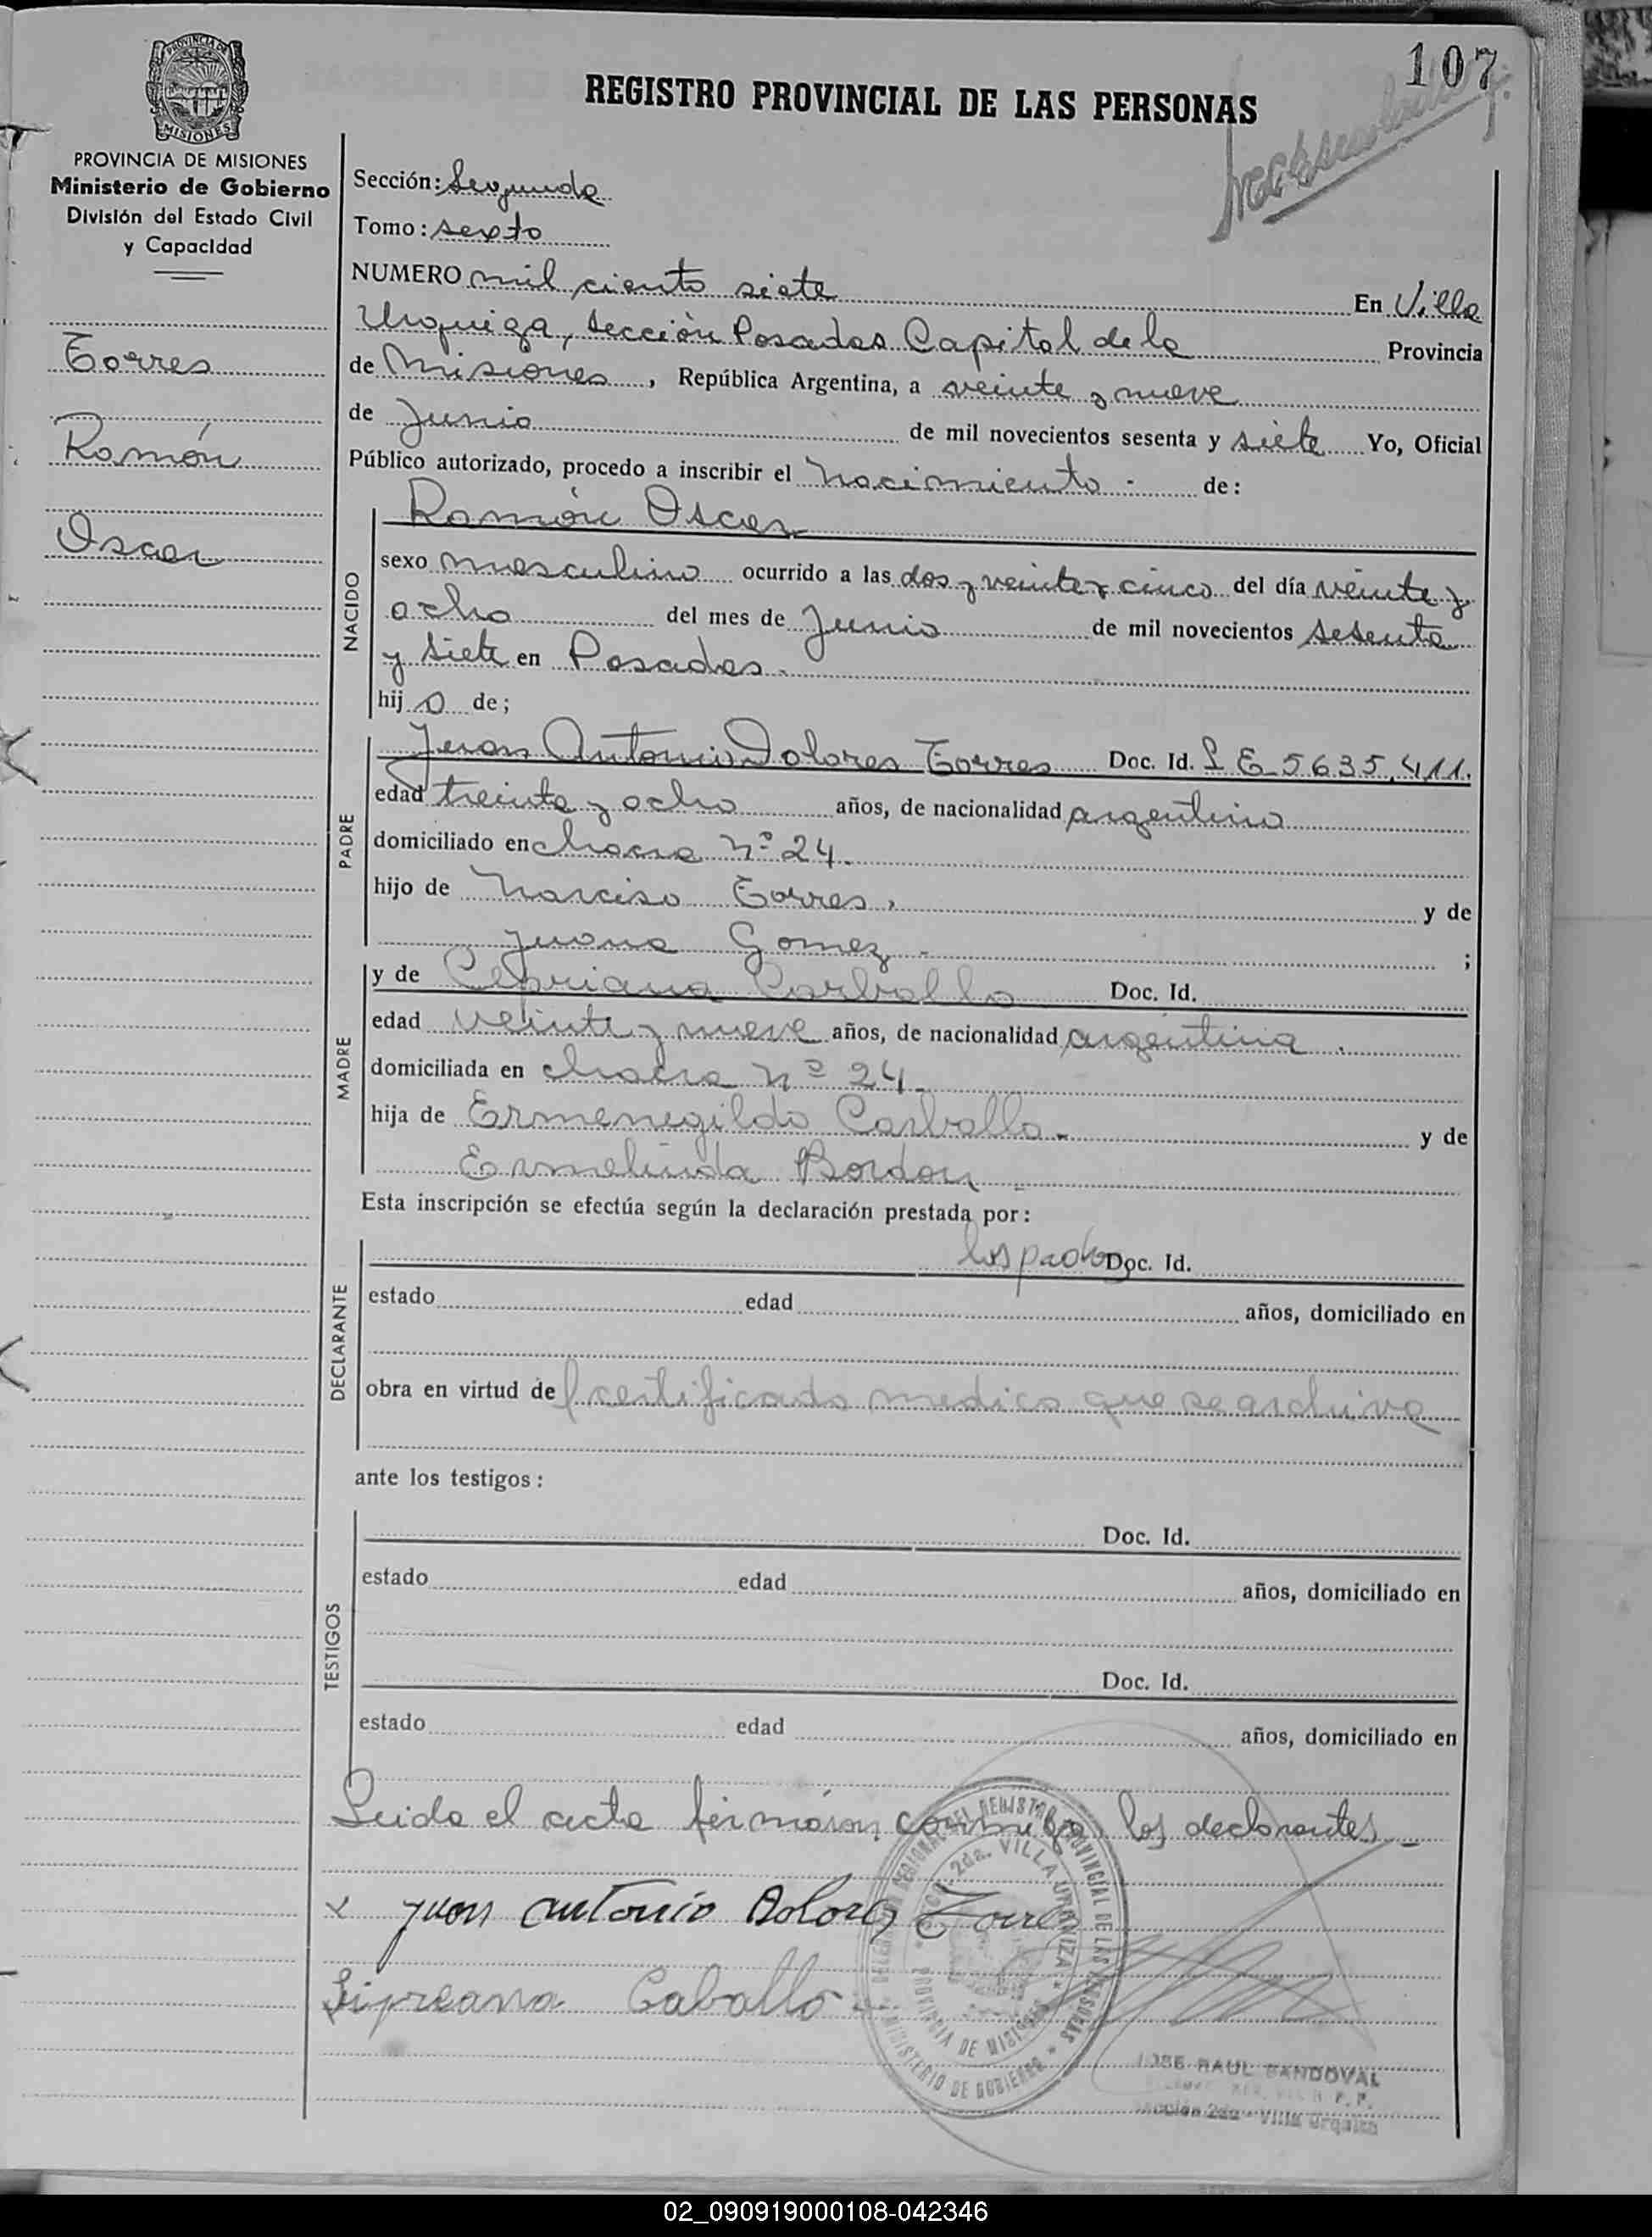 107
REGISTRO PROVINCIAL DE LAS PERSONAS
PROVINCIA DE MISIONES
Ministerio de Gobierno
División del Estado Civil
y Capacidad
Torres
Ramón
Oscar
Sección: Segunda
Tomo: sexto
NUMERO mil ciento siete En Villa
Urquiza, Sección Posadas Capital de la Provincia
de Misiones, República Argentina, a veinte y nueve
de Junio de mil novecientos sesenta y siete Yo, Oficial
Público autorizado, procedo a inscribir el Nacimiento - de:
NACIDO
Ramón Oscar
sexo masculino ocurrido a las dos y veinte y cinco del día veinte y
ocho del mes de Junio de mil novecientos sesenta
y siete en Posadas.
hijo de;
PADRE
Juan Antonio Dolores Torres Doc. Id. L E 5635,411.
edad treinta y ocho años, de nacionalidad argentino
domiciliado en chacra Nº 24.
hijo de Narciso Torres, y de
Juana Gomez - ;
MADRE
y de Cipriana Carballo Doc. Id.
edad veinte y nueve años, de nacionalidad argentina.
domiciliada en chacra Nº 24.
hija de Ermenegildo Carballo - y de
Ermelinda Bordon -
Esta inscripción se efectúa según la declaración prestada por:
DECLARANTE
los padres Doc. Id.
estado edad años, domiciliado en
obra en virtud de certificado medico que se archiva
ante los testigos:
TESTIGOS
Doc. Id.
estado edad años, domiciliado en
Doc. Id.
estado edad años, domiciliado en
Leida el acta firmaron conmigo los declarantes -
x Juan Antonio Dolores Torres
Sipreana Caballo
DELEGACION REGIONAL DEL REGISTRO PROVINCIAL DE LAS PERSONAS * MINISTERIO DE GOBIERNO *
2da. VILLA URQUIZA * PROVINCIA DE MISIONES *
JOSE RAUL SANDOVAL
Sección 2da - Villa Urquiza
02_090919000108-042346